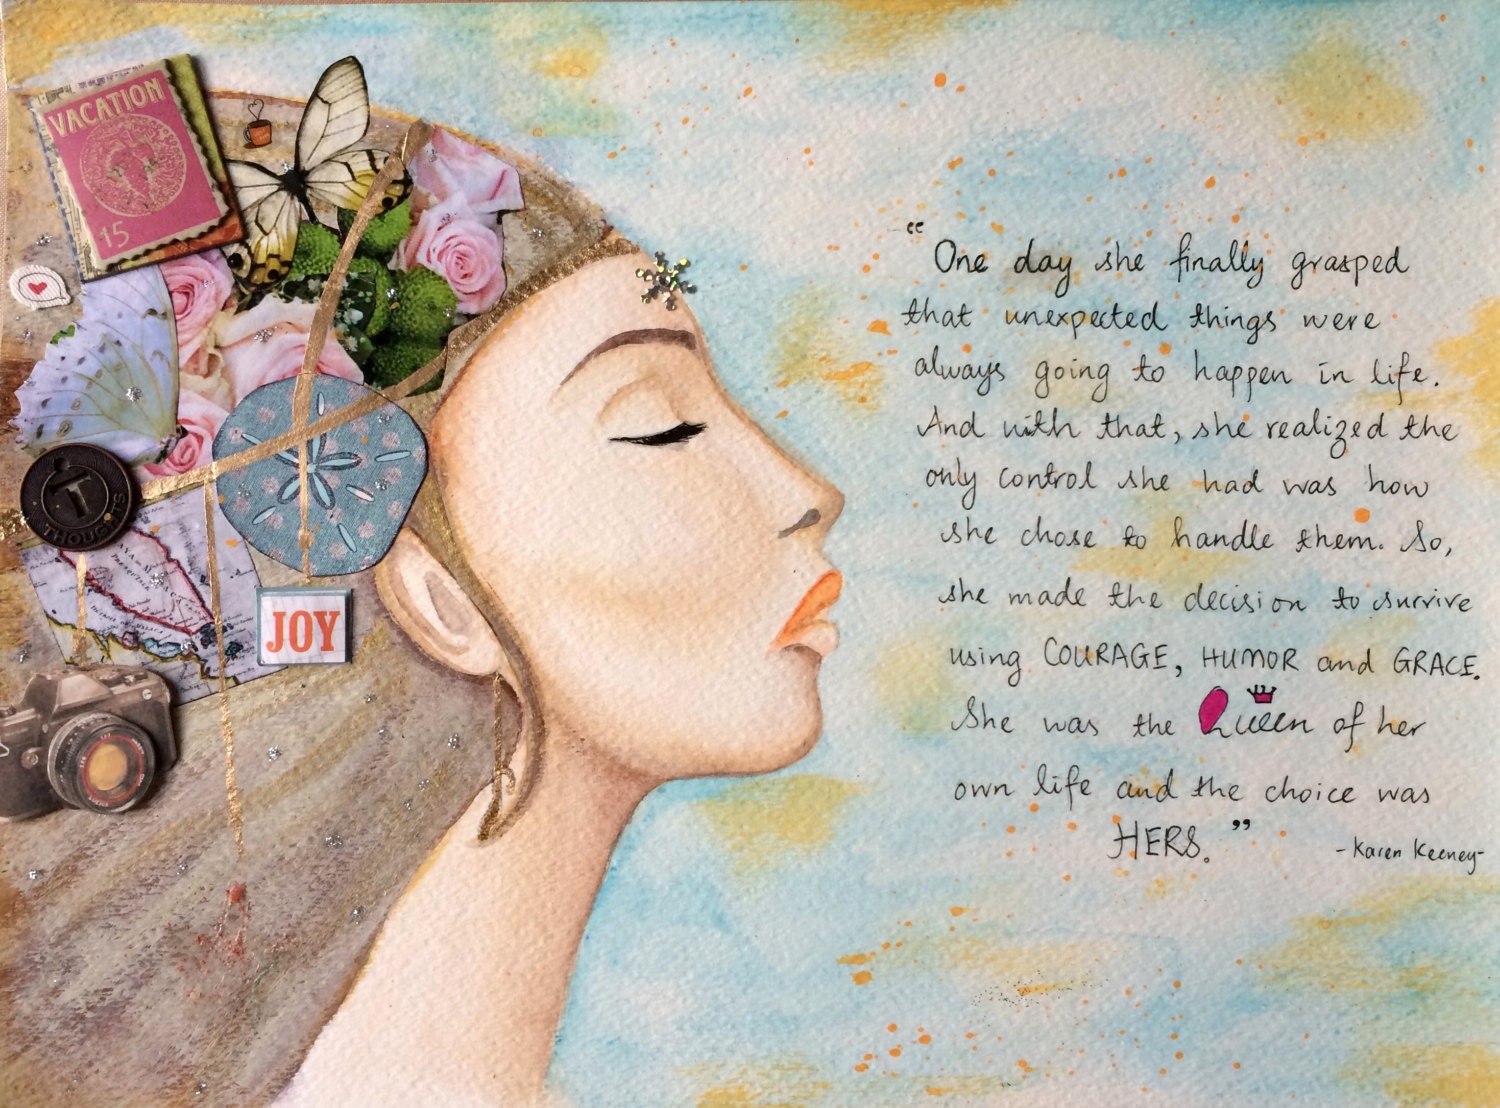 VACATION
15
T
THOUGHTS
JOY
"One day she finally grasped
that unexpected things were
always going to happen in life.
And with that, she realized the
only control she had was how
she chose to handle them. So,
she made the decision to survive
using COURAGE, HUMOR and GRACE.
She was the Queen of her
own life and the choice was
HERS."
-Karen Keeney-